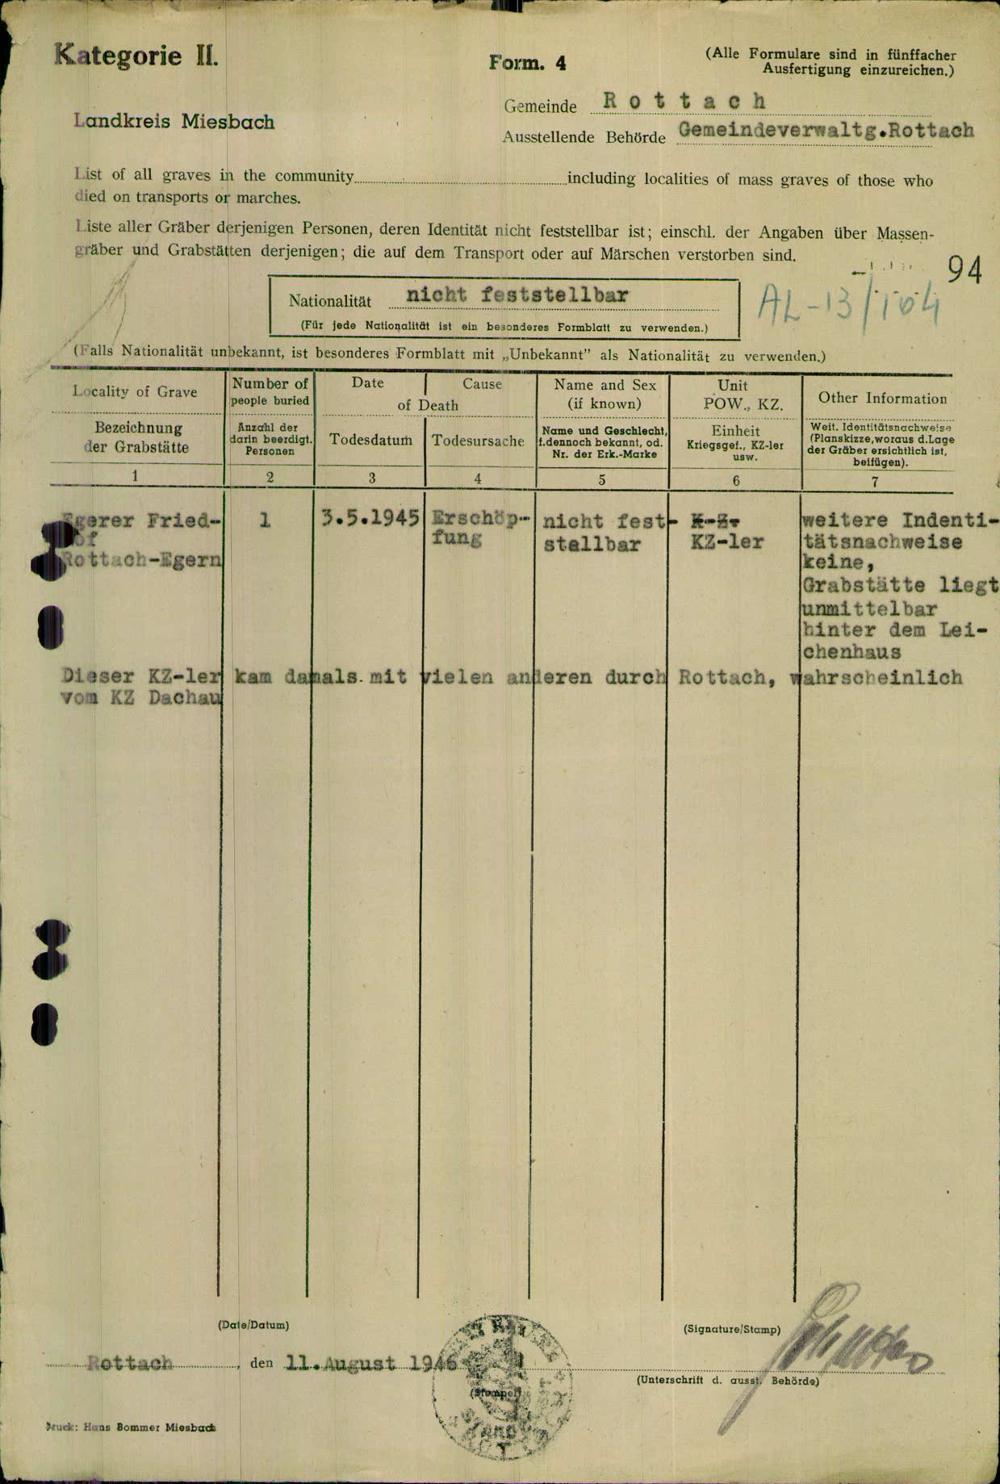 Kategorie II.
Form. 4
(Alle Formulare sind in fünffacher
Ausfertigung einzureichen.)
Landkreis Miesbach
Gemeinde Rottach
Ausstellende Behörde Gemeindeverwaltg.Rottach
List of all graves in the community including localities of mass graves of those who
died on transports or marches.
Liste aller Gräber derjenigen Personen, deren Identität nicht feststellbar ist; einschl. der Angaben über Massen-
gräber und Grabstätten derjenigen; die auf dem Transport oder auf Märschen verstorben sind.
94
AL-13/104
Nationalität nicht feststellbar
(Für jede Nationalität ist ein besonderes Formblatt zu verwenden.)
(Falls Nationalität unbekannt, ist besonderes Formblatt mit „Unbekannt" als Nationalität zu verwenden.)
Locality of Grave
Bezeichnung
der Grabstätte
1
Number of
people buried
Anzahl der
darin beerdigt.
Personen
2
Date | Cause
of Death
Todesdatum
3
Todesursache
4
Name and Sex
(if known)
Name und Geschlecht,
f.dennoch bekannt, od.
Nr. der Erk.-Marke
5
Unit
POW., KZ.
Einheit
Kriegsgef., KZ-ler
usw.
6
Other Information
Weit. Identitätsnachweise
(Planskizze,woraus d.Lage
der Gräber ersichtlich ist,
beifügen).
7
Egerer Fried-
hof
Rottach-Egern
1
3.5.1945
Erschöp-
fung
nicht fest-
stellbar
K-Z.
KZ-ler
weitere Indenti-
tätsnachweise
keine,
Grabstätte liegt
unmittelbar
hinter dem Lei-
chenhaus
Dieser KZ-ler kam damals mit vielen anderen durch Rottach, wahrscheinlich
vom KZ Dachau
(Date/Datum)
Rottach, den 11.August 1946
(Stempel)
(Signature/Stamp)
(Unterschrift d. ausst. Behörde)
Druck: Hans Bommer Miesbach